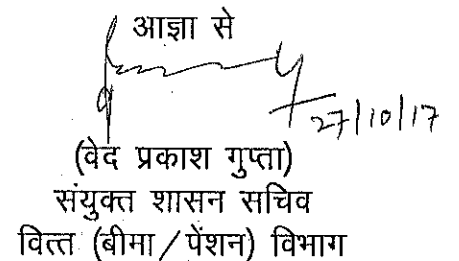 आज्ञा से
27/10/17
(वेद प्रकाश गुप्ता)
संयुक्त शासन सचिव
वित्त (बीमा/पेंशन) विभाग